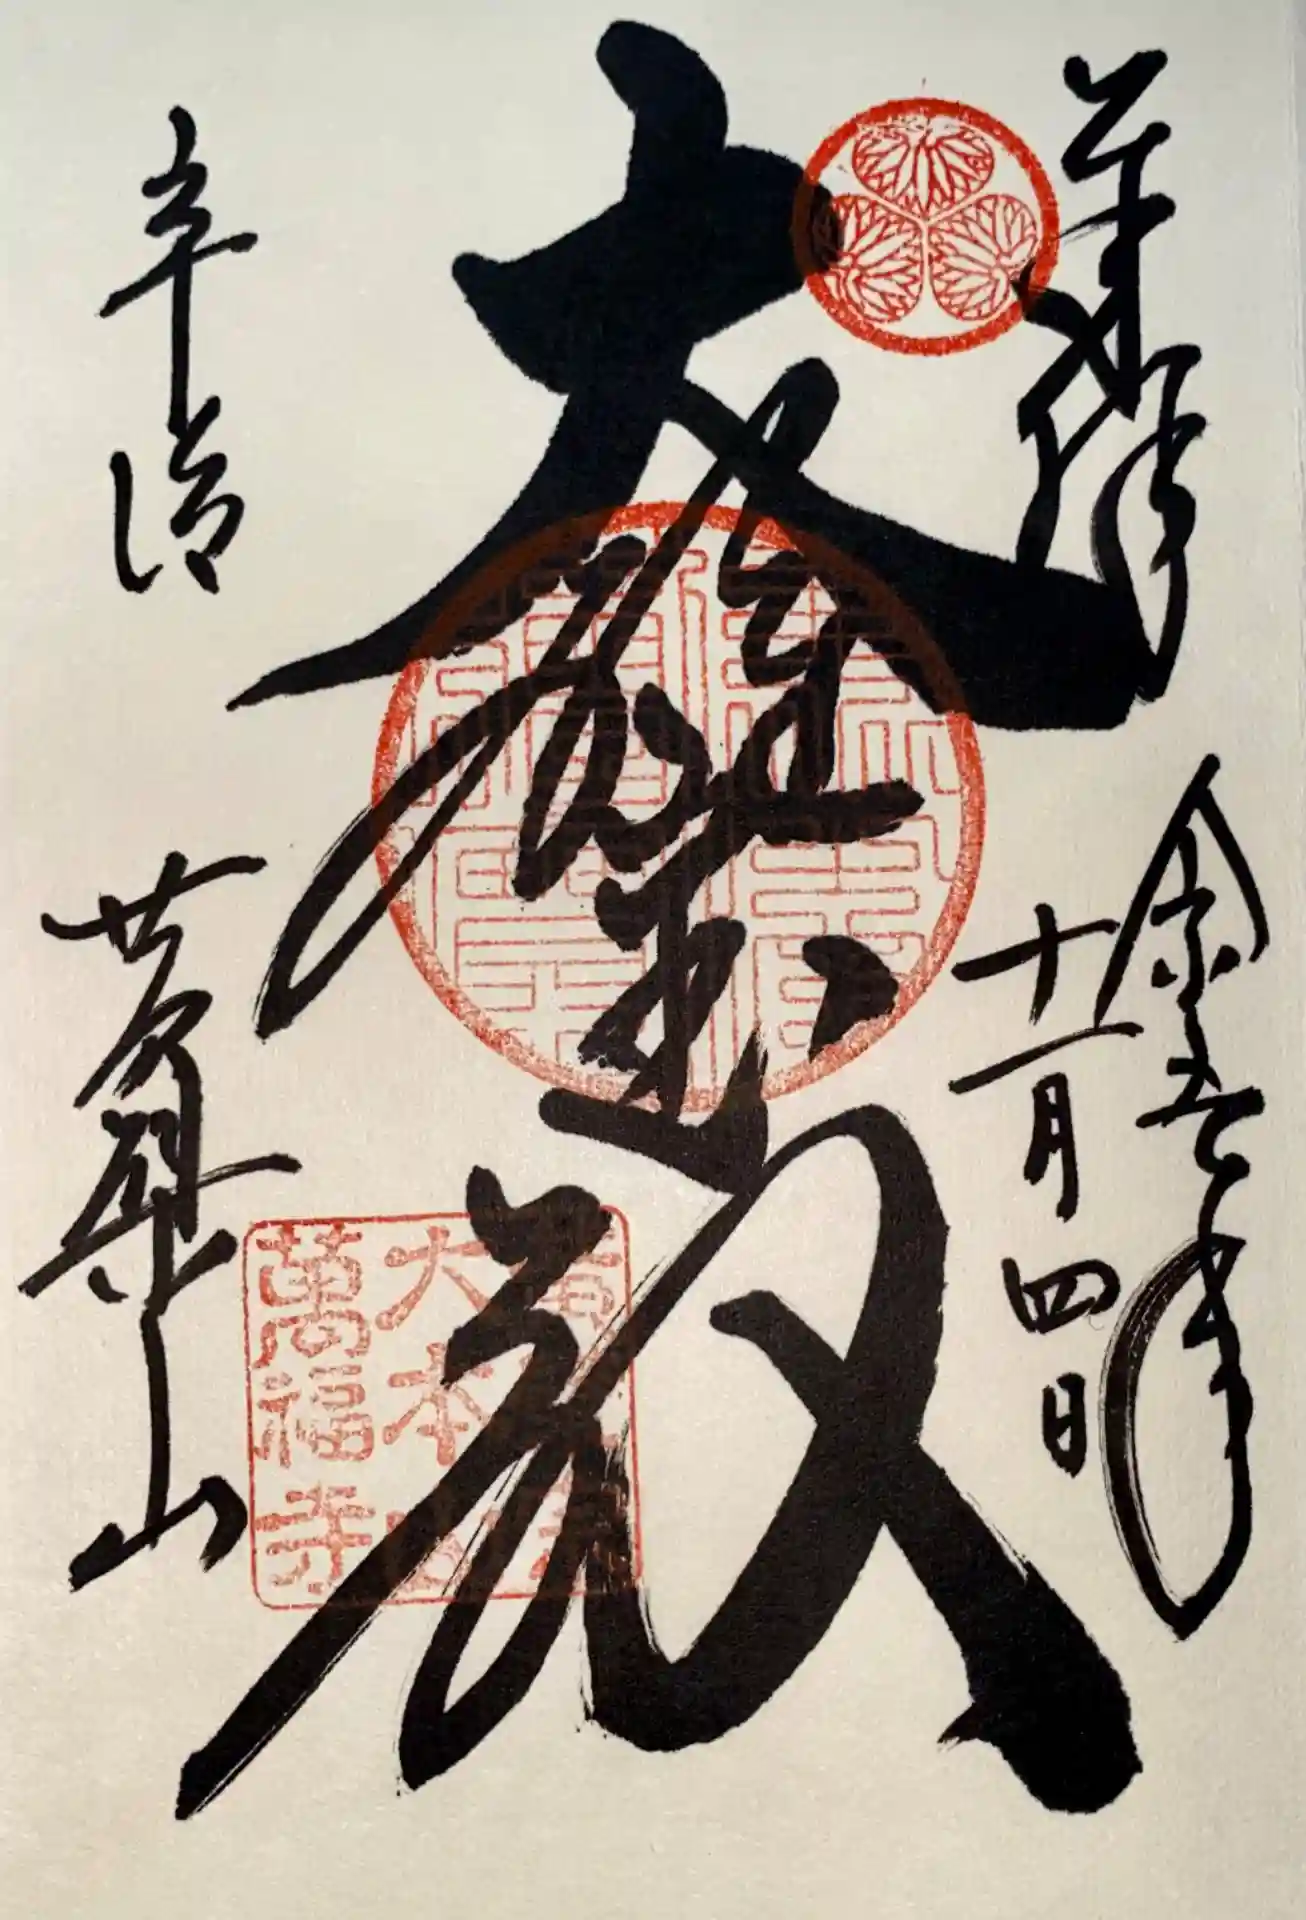 奉拝
令和五年
十一月四日
大雄寳殿
宇治
黄檗山
大本山
萬福寺